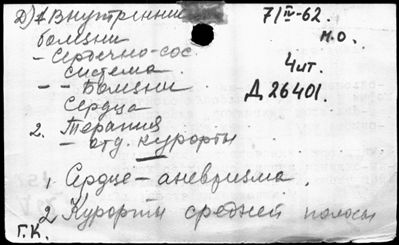 Д) 1 Внутренние
болезни
– Сердечно-сос.
система.
– – Болезни
сердца
2. Терапия
– отд. курорты
7/IV-62.
м.о.
Чит.
Д 26401.
1 Сердце – аневризма.
2 Курорты средней полосы
Г.К.